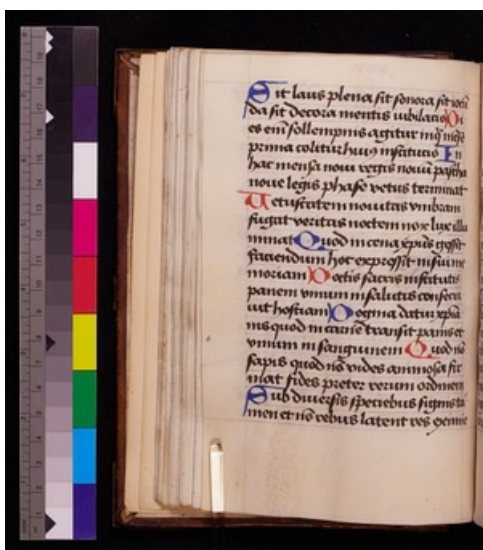 Sit laus plena sit sonora sit iocū
da sit decora mentis iubilacio Di
es em̄ sollempnis agitur in q̄ mēse
prima colitur huiꝰ institucio In
hac mensa noui regis nouū pascha
noue legis phase vetus terminat
Vetustatem nouitas vmbram
fugat veritas noctem nox lux illu
minat Quod in cena xp̄us gessit
faciendum hoc expressit in sui me
moriam Doctis sacris institutis
panem vinum in salutis consecra
uit hostiam Dogma datur xp̄ia
nis quod in carnē transit panis et
vinum in sanguinem Quod nō
capis quod nō vides animosa fir
mat fides preter rerum ordinem
Sub diuersis speciebus signis ta
men et nō rebus latent res eximie